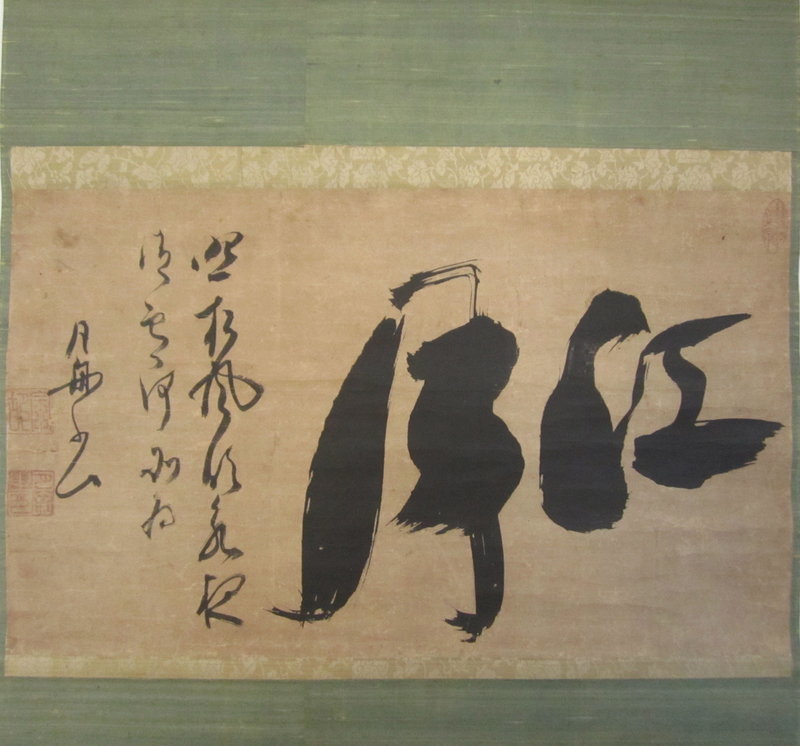 江月
照松風吹永夜
清宵何所為
月舟叟